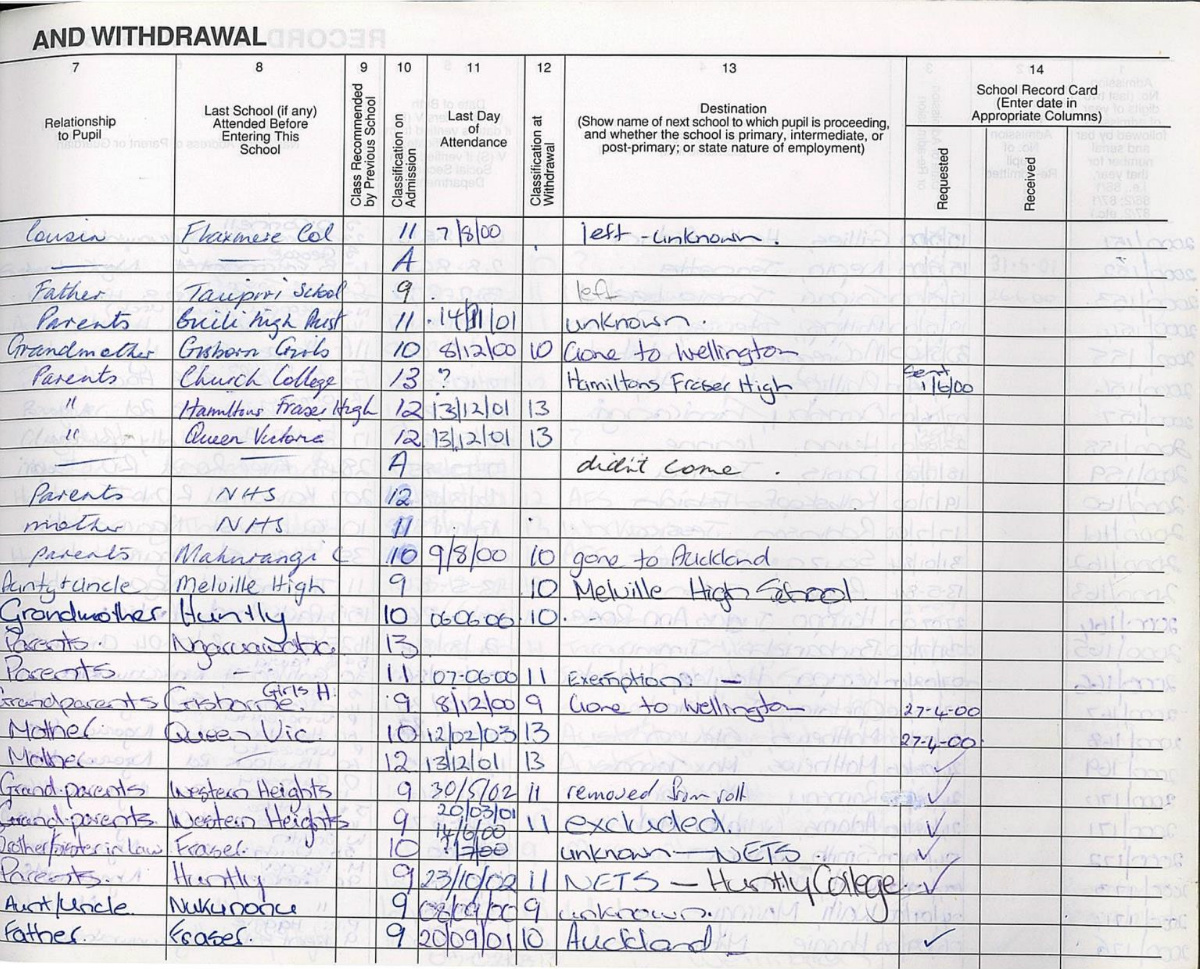 AND WITHDRAWAL
7 8 9 10 11 12 13 14
Relationship to Pupil
Last School (if any) Attended Before Entering This School
Class Recommended by Previous School
Classification on Admission
Last Day of Attendance
Classification at Withdrawal
Destination
(Show name of next school to which pupil is proceeding, and whether the school is primary, intermediate, or post-primary; or state nature of employment)
School Record Card
(Enter date in Appropriate Columns)
Requested
Received
Cousin Flaxmere Col 11 7/8/00 left - unknown.
A
Father Taupiri School 9 left
Parents High 11 14/11/01 unknown.
Grandmother Gisborn Girls 10 8/12/00 10 Gone to Wellington
Parents Church College 13 ? Hamiltons Fraser High Sent 1/6/00
" Hamiltons Fraser High 12 13/12/01 13
" Queen Victoria 12 13/12/01 13
A didn't come.
Parents NHS 12
mother NHS 11
parents Mahurangi C 10 9/8/00 10 gone to Auckland
Aunty + Uncle Melville High 9 10 Melville High School
Grandmother Huntly 10 06.06.00 10.
Parents. 13
Parents - 11 07.06.00 11 Exemption -
Grandparents Gisborne Girls H. 9 8/12/00 9 Gone to Wellington 27-4-00
Mother Queen Vic. 10 12/02/03 13 27-4-00
Mother 12 13/12/01 13 ✓
Grand-parents Western Heights 9 30/5/02 11 removed from roll ✓
Grand-parents. Western Heights 9 20/03/01 11 excluded. ✓
Brother/sister in Law Fraser. 10 14/6/00 unknown - NETS. ✓
Parents. Huntly 9 23/10/02 11 NETS - Huntly College ✓
Aunt/Uncle. Nukunonu 9 08/09/00 9 unknown.
Father. Fraser. 9 20/09/01 10 Auckland. ✓